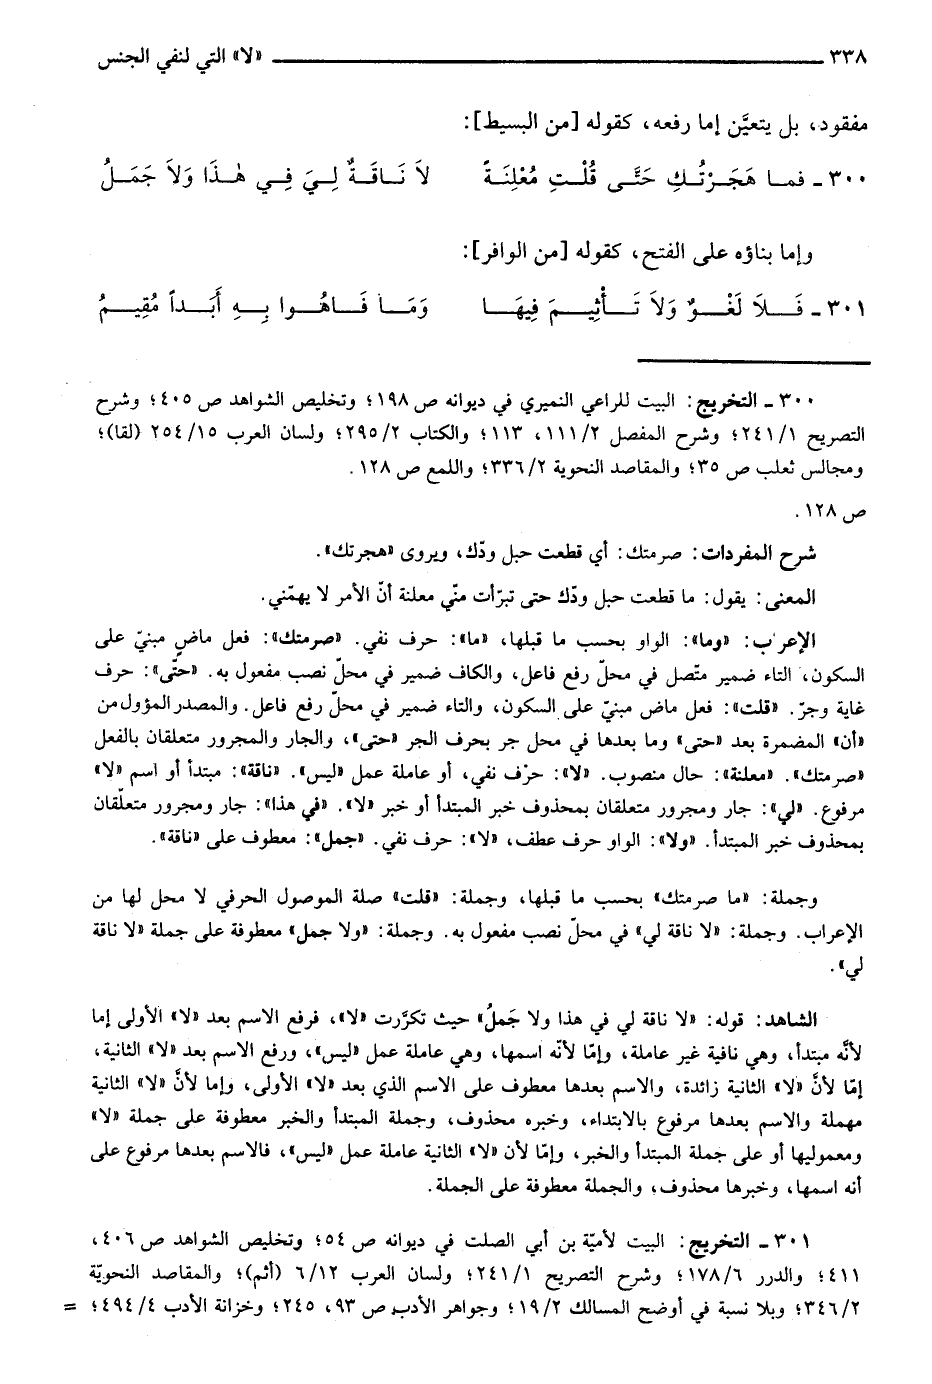 ٣٣٨ «لا» التي لنفي الجنس
مفقود، بل يتعيَّن إما رفعه، كقوله [من البسيط]:
٣٠٠ ـ فما هَجَرْتُكِ حَتَّى قُلْتِ مُعْلِنَةً لاَ نَاقَةٌ لِيَ فِي هٰذَا وَلاَ جَمَلُ
وإما بناؤه على الفتح، كقوله [من الوافر]:
٣٠١ ـ فَلاَ لَغْوٌ وَلاَ تَأْثِيمَ فِيهَا وَمَا فَاهُوا بِهِ أَبَداً مُقِيمُ
٣٠٠ ـ التخريج: البيت للراعي النميري في ديوانه ص ١٩٨؛ وتخليص الشواهد ص ٤٠٥؛ وشرح
التصريح ٢٤١/١؛ وشرح المفصل ١١١/٢، ١١٣؛ والكتاب ٢٩٥/٢؛ ولسان العرب ٢٥٤/١٥ (لقا)؛
ومجالس ثعلب ص ٣٥؛ والمقاصد النحوية ٣٣٦/٢؛ واللمع ص ١٢٨.
ص ١٢٨.
شرح المفردات: صرمتك: أي قطعت حبل ودّك، ويروى «هجرتك».
المعنى: يقول: ما قطعت حبل ودّك حتى تبرّأت منّي معلنة أنّ الأمر لا يهمّني.
الإعراب: «وما»: الواو بحسب ما قبلها، «ما»: حرف نفي. «صرمتك»: فعل ماضٍ مبنيّ على
السكون، التاء ضمير متّصل في محلّ رفع فاعل، والكاف ضمير في محلّ نصب مفعول به. «حتّى»: حرف
غاية وجرّ. «قلت»: فعل ماض مبنيّ على السكون، والتاء ضمير في محلّ رفع فاعل. والمصدر المؤول من
«أن» المضمرة بعد «حتى» وما بعدها في محل جر بحرف الجر «حتى»، والجار والمجرور متعلقان بالفعل
«صرمتك». «معلنة»: حال منصوب. «لا»: حرْف نفي، أو عاملة عمل «ليس». «ناقة»: مبتدأ أو اسم «لا»
مرفوع. «لي»: جار ومجرور متعلقان بمحذوف خبر المبتدأ أو خبر «لا». «في هذا»: جار ومجرور متعلّقان
بمحذوف خبر المبتدأ. «ولا»: الواو حرف عطف، «لا»: حرف نفي. «جمل»: معطوف على «ناقة».
وجملة: «ما صرمتك» بحسب ما قبلها، وجملة: «قلت» صلة الموصول الحرفي لا محل لها من
الإعراب. وجملة: «لا ناقة لي» في محلّ نصب مفعول به. وجملة: «ولا جمل» معطوفة على جملة «لا ناقة
لي».
الشاهد: قوله: «لا ناقة لي في هذا ولا جَملُ» حيث تكرَّرت «لا»، فرفع الاسم بعد «لا» الأولى إما
لأنَّه مبتدأ، وهي نافية غير عاملة، وإمّا لأنّه اسمها، وهي عاملة عمل «ليس»، ورفع الاسم بعد «لا» الثانية،
إمّا لأنَّ «لا» الثانية زائدة، والاسم بعدها معطوف على الاسم الذي بعد «لا» الأولى، وإما لأنَّ «لا» الثانية
مهملة والاسم بعدها مرفوع بالابتداء، وخبره محذوف، وجملة المبتدأ والخبر معطوفة على جملة «لا»
ومعموليها أو على جملة المبتدأ والخبر، وإمّا لأن «لا» الثانية عاملة عمل «ليس»، فالاسم بعدها مرفوع على
أنه اسمها، وخبرها محذوف، والجملة معطوفة على الجملة.
٣٠١ ـ التخريج: البيت لأميّة بن أبي الصلت في ديوانه ص ٥٤؛ وتخليص الشواهد ص ٤٠٦،
٤١١؛ والدرر ١٧٨/٦؛ وشرح التصريح ٢٤١/١؛ ولسان العرب ٦/١٢ (أثم)؛ والمقاصد النحويّة
٣٤٦/٢؛ وبلا نسبة في أوضح المسالك ١٩/٢؛ وجواهر الأدب ص ٩٣، ٢٤٥؛ وخزانة الأدب ٤٩٤/٤؛ =